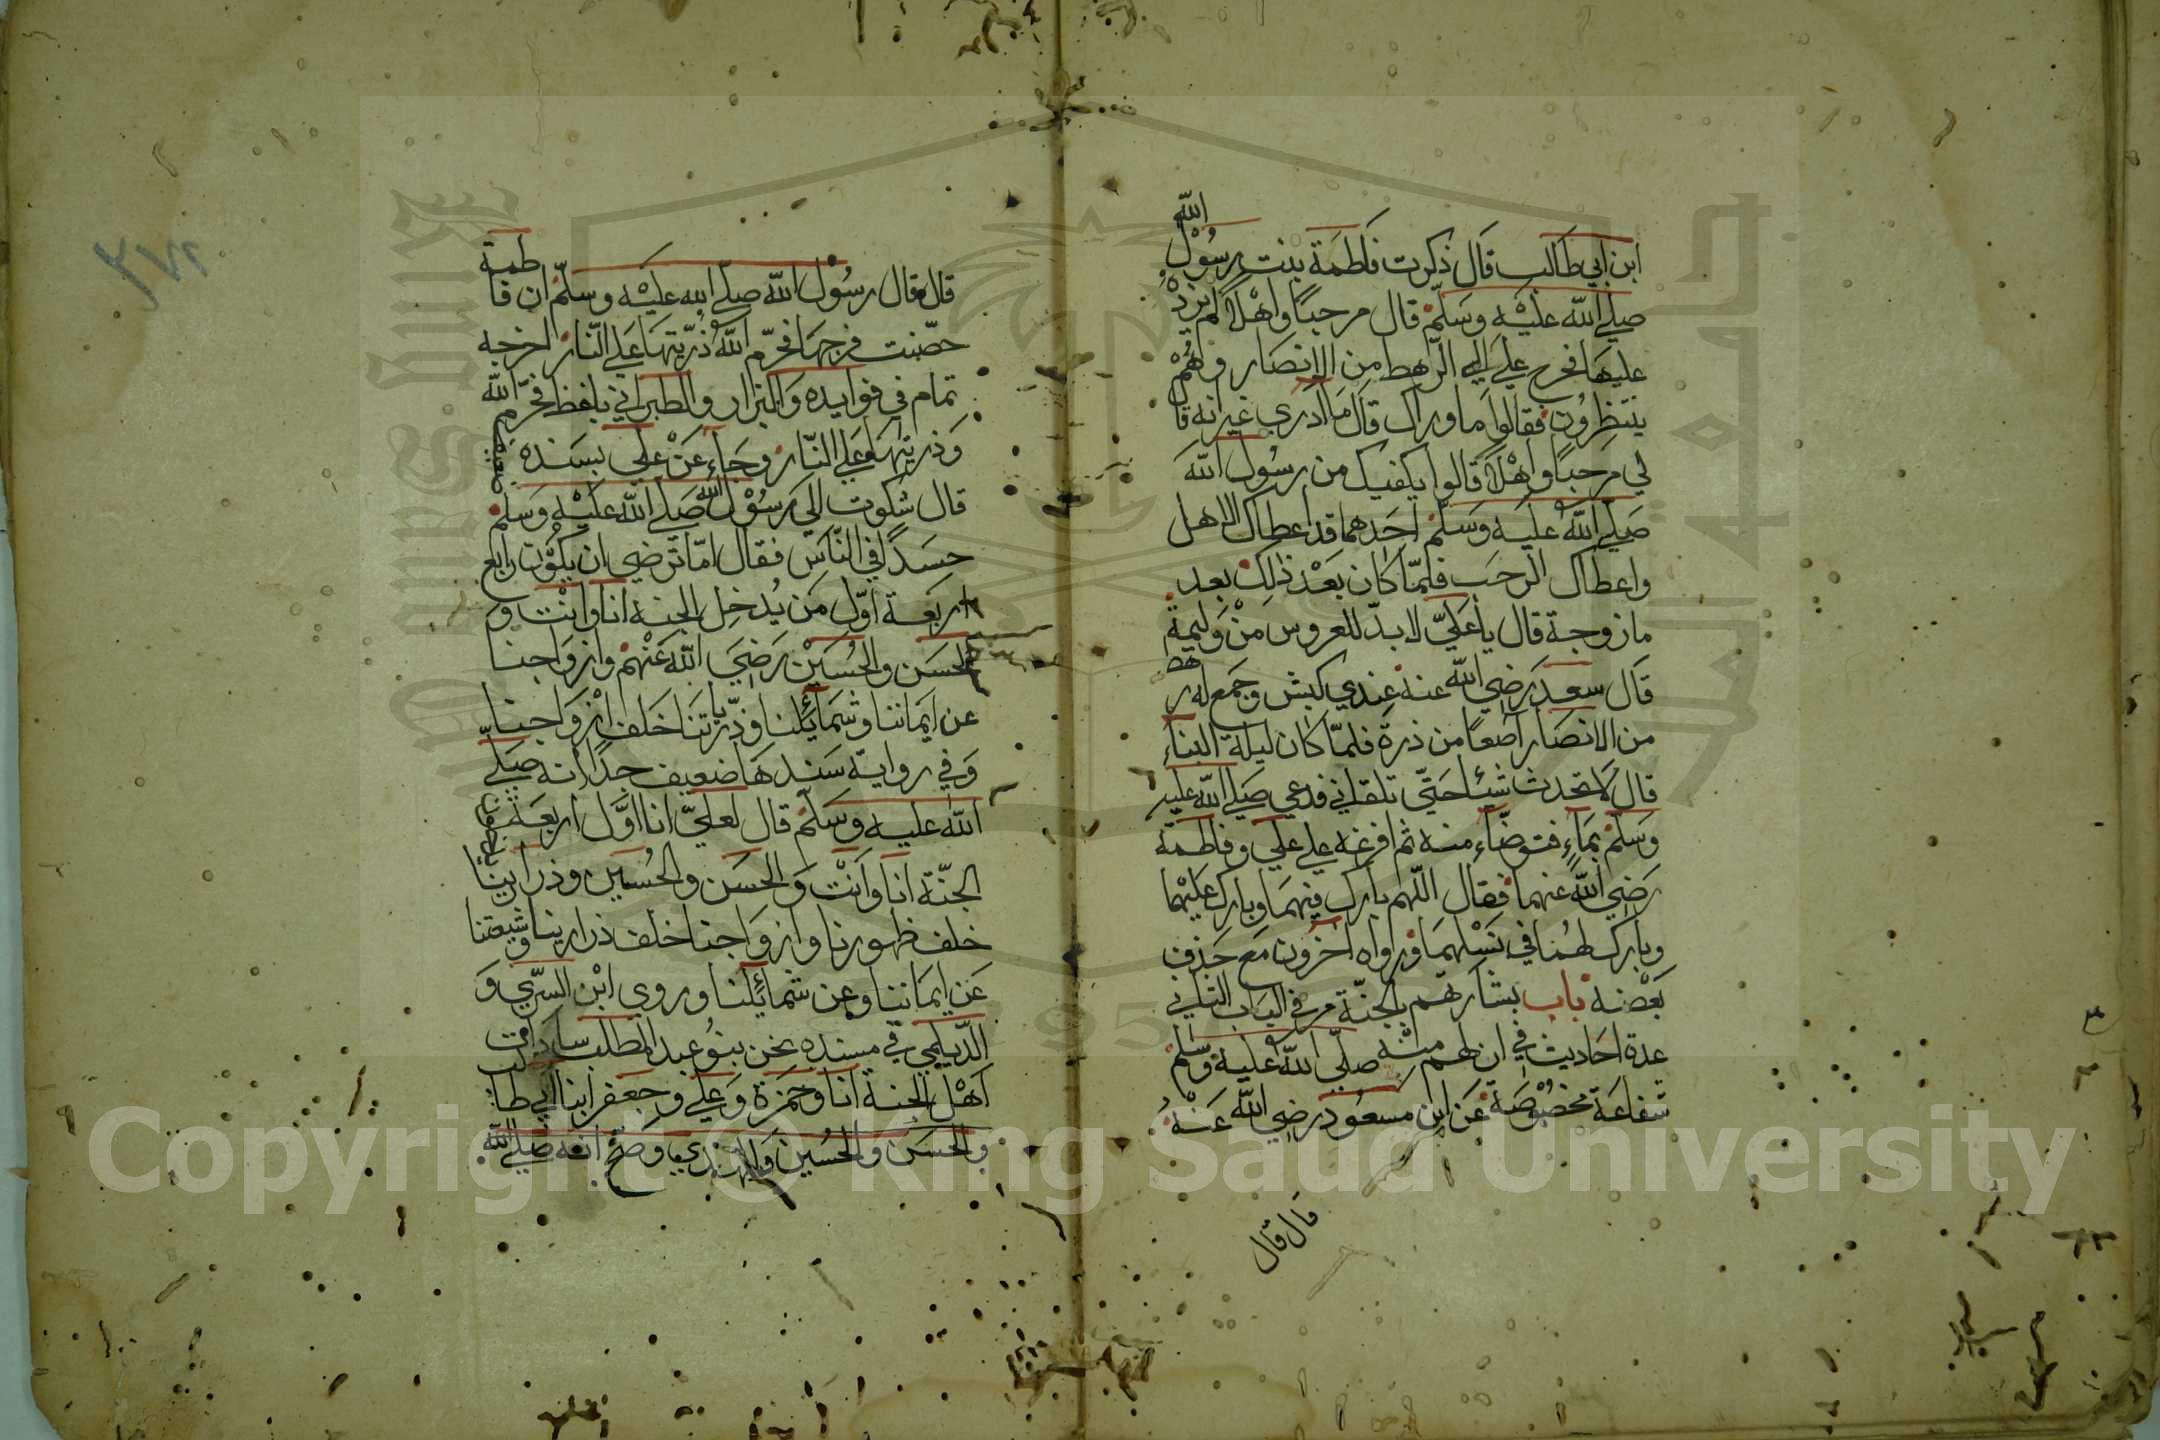 ابن ابي طالب قال ذكرت فاطمة بنت رسول الله
صلى الله عليه وسلم قال مرحبا واهلا لم يزد
عليها فخرج علي الى الرهط من الانصار وهم
ينتظرون فقالوا ما وراك قال ما ادري غير انه قا
لي مرحبا واهلا قالوا يكفيك من رسول الله
صلى الله عليه وسلم احدهما قد اعطاك الاهل
واعطاك الرحب فلما كان بعد ذلك بعد
ما زوجة قال يا علي لا بد للعروس من وليمة
قال سعد رضي الله عنه عندي كبش وجمع له رهط
من الانصار اصعا من ذرة فلما كان ليلة البناء
قال لا تحدث شيئا حتى تلقاني فدعي صلى الله عليه
وسلم بماء فتوضاء منه ثم افرغه على علي وفاطمة
رضي الله عنهما فقال اللهم بارك فيهما وبارك عليهما
وبارك لهما في نسلهما ورواه اخرون مع حذف
بعضه باب بشارتهم بالجنة مر في الباب الثاني
عدة احاديث في ان لهم منه صلى الله عليه وسلم
شفاعة مخصوصة عن ابن مسعود رضي الله عنه
قال قال
قال قال رسول الله صلى الله عليه وسلم ان فاطمة
حصنت فرجها فحرم الله ذريتها على النار اخرجه
تمام في فوايده والبزار والطبراني بلفظ فحرم الله
وذريتها على النار وجاء عن علي بسنده ضعيف
قال شكوت الى رسول الله صلى الله عليه وسلم
حسدا في الناس فقال اما ترضي ان يكون رابع
اربعة اول من يدخل الجنة انا وانت و
الحسن والحسين رضي الله عنهم وازواجنا
عن ايماننا وشمائلنا وذرياتنا خلف ازواجنا
وفي رواية سندها ضعيف جدا انه صلى
الله عليه وسلم قال لعلي انا اول اربعة يدخلون
الجنة انا وانت والحسن والحسين وذرارينا
خلف ظهورنا وازواجنا خلف ذرارينا وشيعتنا
عن ايماننا وعن شمائلنا وروى ابن السري و
الديلمي في مسنده نحن بنو عبد المطلب سادات
اهل الجنة انا وحمزة وعلي وجعفر ابنا ابي طالب
والحسن والحسين والمهدي وصح انه صلى الله
Copyright © King Saud University